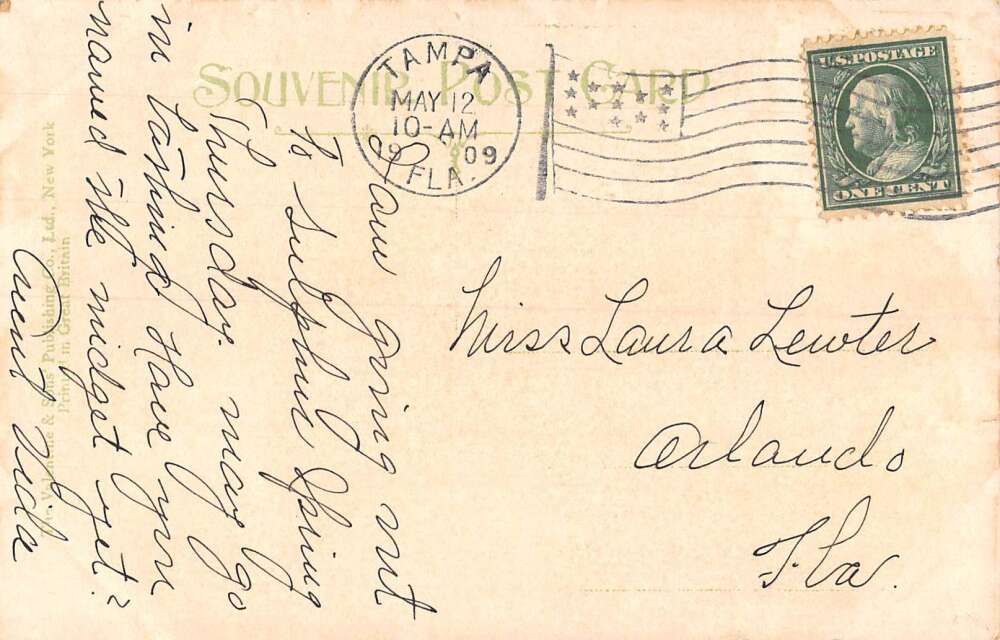 SOUVENIR POST CARD
TAMPA
MAY 12
10-AM
19 09
FLA.
U.S. POSTAGE
ONE CENT
I am going out
to sulphur Spring
Thursday. may go
in bathing Have you
named the midget yet?
Aunt Veda
Miss Laura Lewter
Orlando
Fla.
The Valentine & Sons' Publishing Co., Ltd., New York
Printed in Great Britain